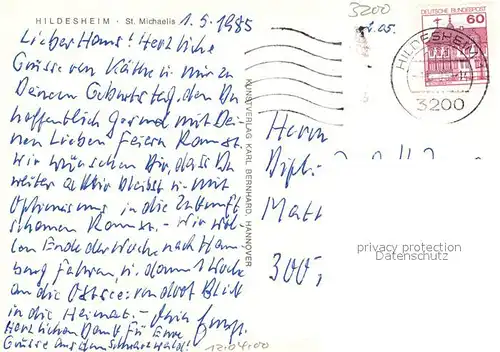 HILDESHEIM · St. Michaelis 1.5.1985
Lieber Hans! Herzliche
Grüsse von Käthe u. mir zu
Deinem Geburtstag, den Du
hoffentlich gesund mit Dei-
nen Lieben feiern kannst.
Wir wünschen Dir, dass Du
weiter aktiv bleibst u. mit
Optimismus in die Zukunft
schauen kannst. - Wir wol-
len Ende der Woche nach Ham-
burg fahren, u. dann 1 Woche
an die Ostsee: von dort Blick
in die Heimat. - Dein
Herzlichen Dank für Eure
Grüsse aus dem Schwarzwald!
KUNSTVERLAG KARL BERNHARD, HANNOVER
3200
2.05.
DEUTSCHE BUNDESPOST
60
HILDESHEIM
3200
Herrn
Dipl.
Matt
300,
privacy protection
Datenschutz
12.04.00